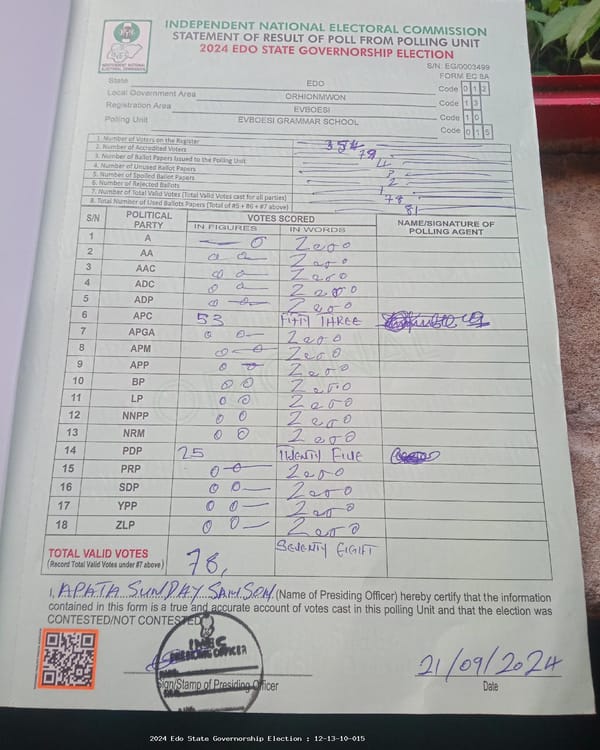 INDEPENDENT NATIONAL ELECTORAL COMMISSION
STATEMENT OF RESULT OF POLL FROM POLLING UNIT
2024 EDO STATE GOVERNORSHIP ELECTION
INEC
INDEPENDENT NATIONAL ELECTORAL COMMISSION
S/N. EG/0003499
FORM EC 8A
State EDO Code 012
Local Government Area ORHIONMWON Code 13
Registration Area EVBOESI Code 10
Polling Unit EVBOESI GRAMMAR SCHOOL Code 015
1. Number of Voters on the Register 354
2. Number of Accredited Voters 79
3. Number of Ballot Papers Issued to the Polling Unit
4. Number of Unused Ballot Papers
5. Number of Spoiled Ballot Papers 2
6. Number of Rejected Ballots 1
7. Number of Total Valid Votes (Total Valid Votes cast for all parties) 78
8. Total Number of Used Ballots Papers (Total of #5 + #6 + #7 above) 81
S/N POLITICAL PARTY VOTES SCORED NAME/SIGNATURE OF POLLING AGENT
IN FIGURES IN WORDS
1 A 0 Zero
2 AA 0 0 Zero
3 AAC 0 0 Zero
4 ADC 0 0 Zero
5 ADP 0 0 Zero
6 APC 53 FIFTY THREE
7 APGA 0 0 Zero
8 APM 0 0 Zero
9 APP 0 0 Zero
10 BP 0 0 Zero
11 LP 0 0 Zero
12 NNPP 0 0 Zero
13 NRM 0 0 Zero
14 PDP 25 TWENTY FIVE
15 PRP 0 0 Zero
16 SDP 0 0 Zero
17 YPP 0 0 Zero
18 ZLP 0 0 Zero
TOTAL VALID VOTES 78, SEVENTY EIGHT
(Record Total Valid Votes under #7 above)
I, APATA SUNDAY SAMSON (Name of Presiding Officer) hereby certify that the information
contained in this form is a true and accurate account of votes cast in this polling Unit and that the election was
CONTESTED/NOT CONTESTED
INEC
PRESIDING OFFICER
21/09/2024
Sign/Stamp of Presiding Officer Date
2024 Edo State Governorship Election : 12-13-10-015